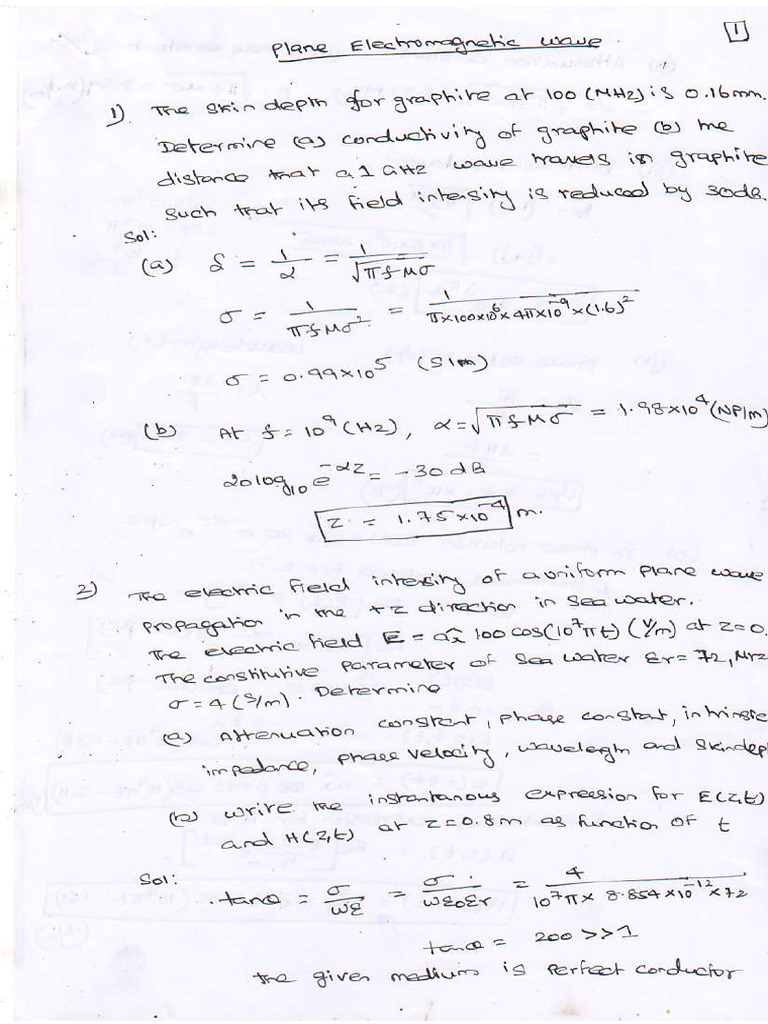 1
Plane Electromagnetic wave
1) The skin depth for graphite at 100 (MHz) is 0.16mm.
Determine (a) conductivity of graphite (b) the
distance that a 1 GHz wave travels in graphite
such that its field intensity is reduced by 30dB.
Sol:
(a) δ = 1/α = 1/√πfμσ
σ = 1/πfμσ² = 1/π×100×10⁶×4π×10⁻⁹×(1.6)²
σ = 0.99×10⁵ (S/m)
(b) At f = 10⁹ (Hz), α = √πfμσ = 1.98×10⁴ (NP/m)
20log₁₀ e^-αz = -30 dB
z = 1.75×10⁻⁴ m.
2) The electric field intensity of a uniform plane wave
propagation in the +z direction in sea water.
The electric field E = ax 100 cos(10⁷πt) (V/m) at z=0.
The constitutive parameter of sea water εr = 72, μr=
σ = 4 (S/m). Determine
(a) Attenuation constant, phase constant, intrinsic
impedance, phase velocity, wavelength and skindep
(b) write the instantanous expression for E(z,t)
and H(z,t) at z=0.8m as function of t
Sol:
tanθ = σ/ωε = σ/ωε₀εr = 4/10⁷π× 8.854×10⁻¹²×72
tanθ = 200 >> 1
the given medium is perfect conductor